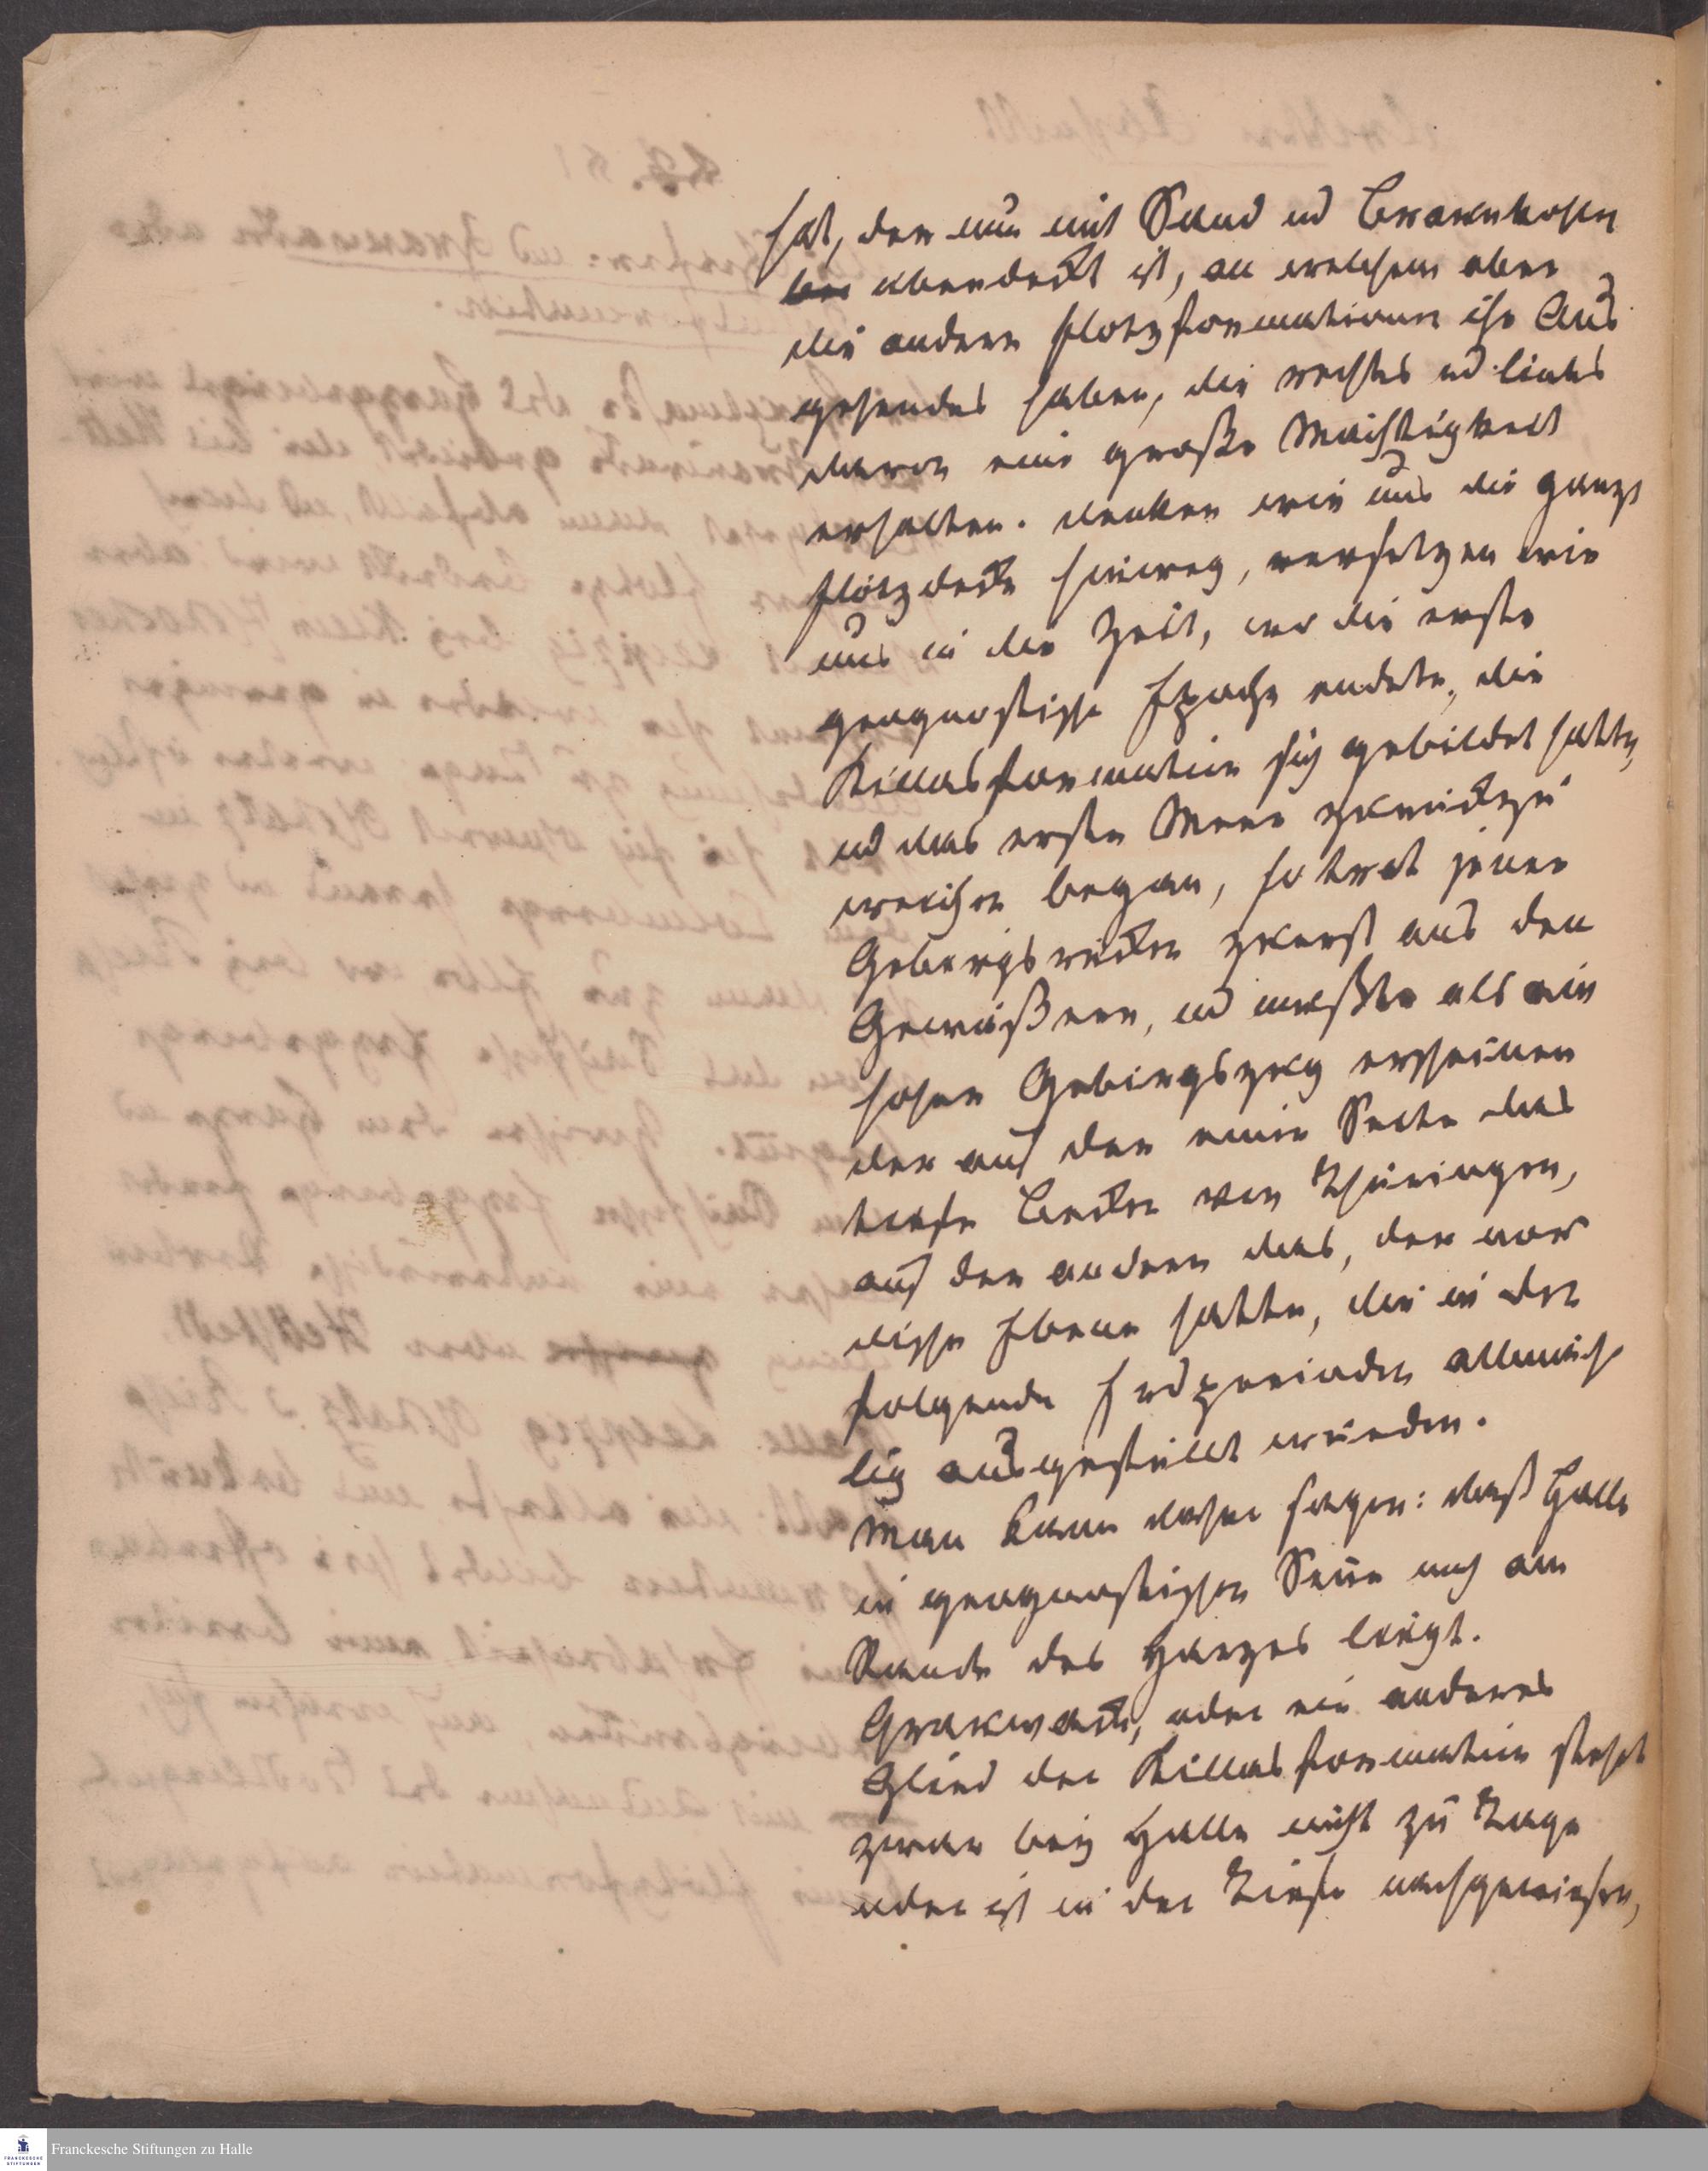 hat, der nun mit Sand ud Braunkohlen
ber uberdeckt ist, an welchem aber
die andern Flötzformationen ihr Aus
gehendes haben, die rechts ud links
davon eine große Mächtigkeit
erhalten. Denken wir uns die ganze
Flötzdecke hinweg, versetzen wir
uns in die Zeit, wo die erste
geognostische Epoche endete, die
Killasformation sich gebildet hatte,
ud das erste Meer zurückzu
weichen began, so trat jener
Gebirgsrücken zuerst aus den
Gewäßern, ud mußte als ein
hoher Gebirgszug erscheinen
der auf der einen Seite das
tiefe Becken von Thüringen,
auf der andern das, der nor
dische Ebene hatte, die in der
folgende Erdperioden allmäh
lig ausgefüllt wurden.
Man kann daher sagen: daß Halle
in geognostischen Sinne noch am
Rande des Harzes liegt.
Graxwacke, oder ein anderes
Glied der Killasformation steht
zwar bey Halle nicht zu Tage
oder ist in der Tiefe nachgewiesen,
Franckesche Stiftungen zu Halle